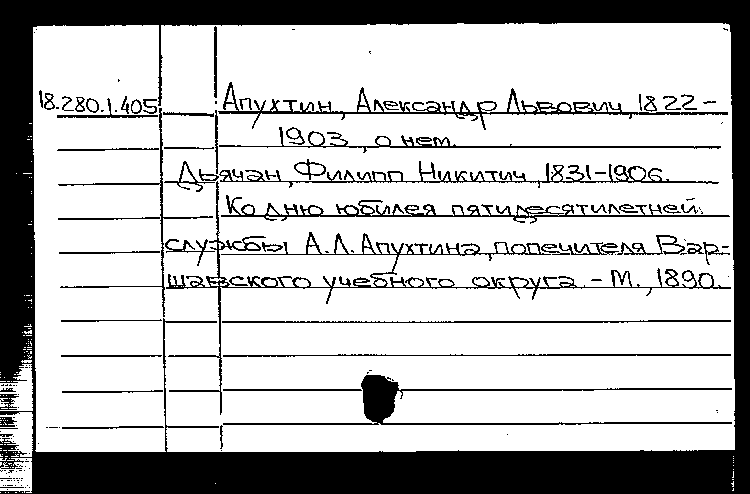 18.280.1.405 Апухтин, Александр Львович, 1822-
1903, о нем.
Дьячан, Филипп Никитич, 1831-1906.
Ко дню юбилея пятидесятилетней
службы А.Л.Апухтина, попечителя Вар-
шавского учебного округа. - М., 1890.